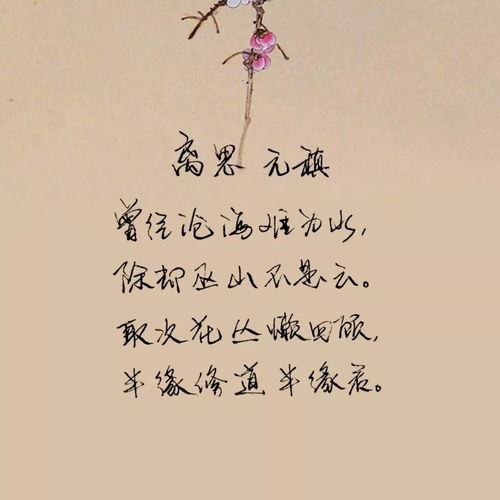 离思 元稹
曾经沧海难为水，
除却巫山不是云。
取次花丛懒回顾，
半缘修道半缘君。